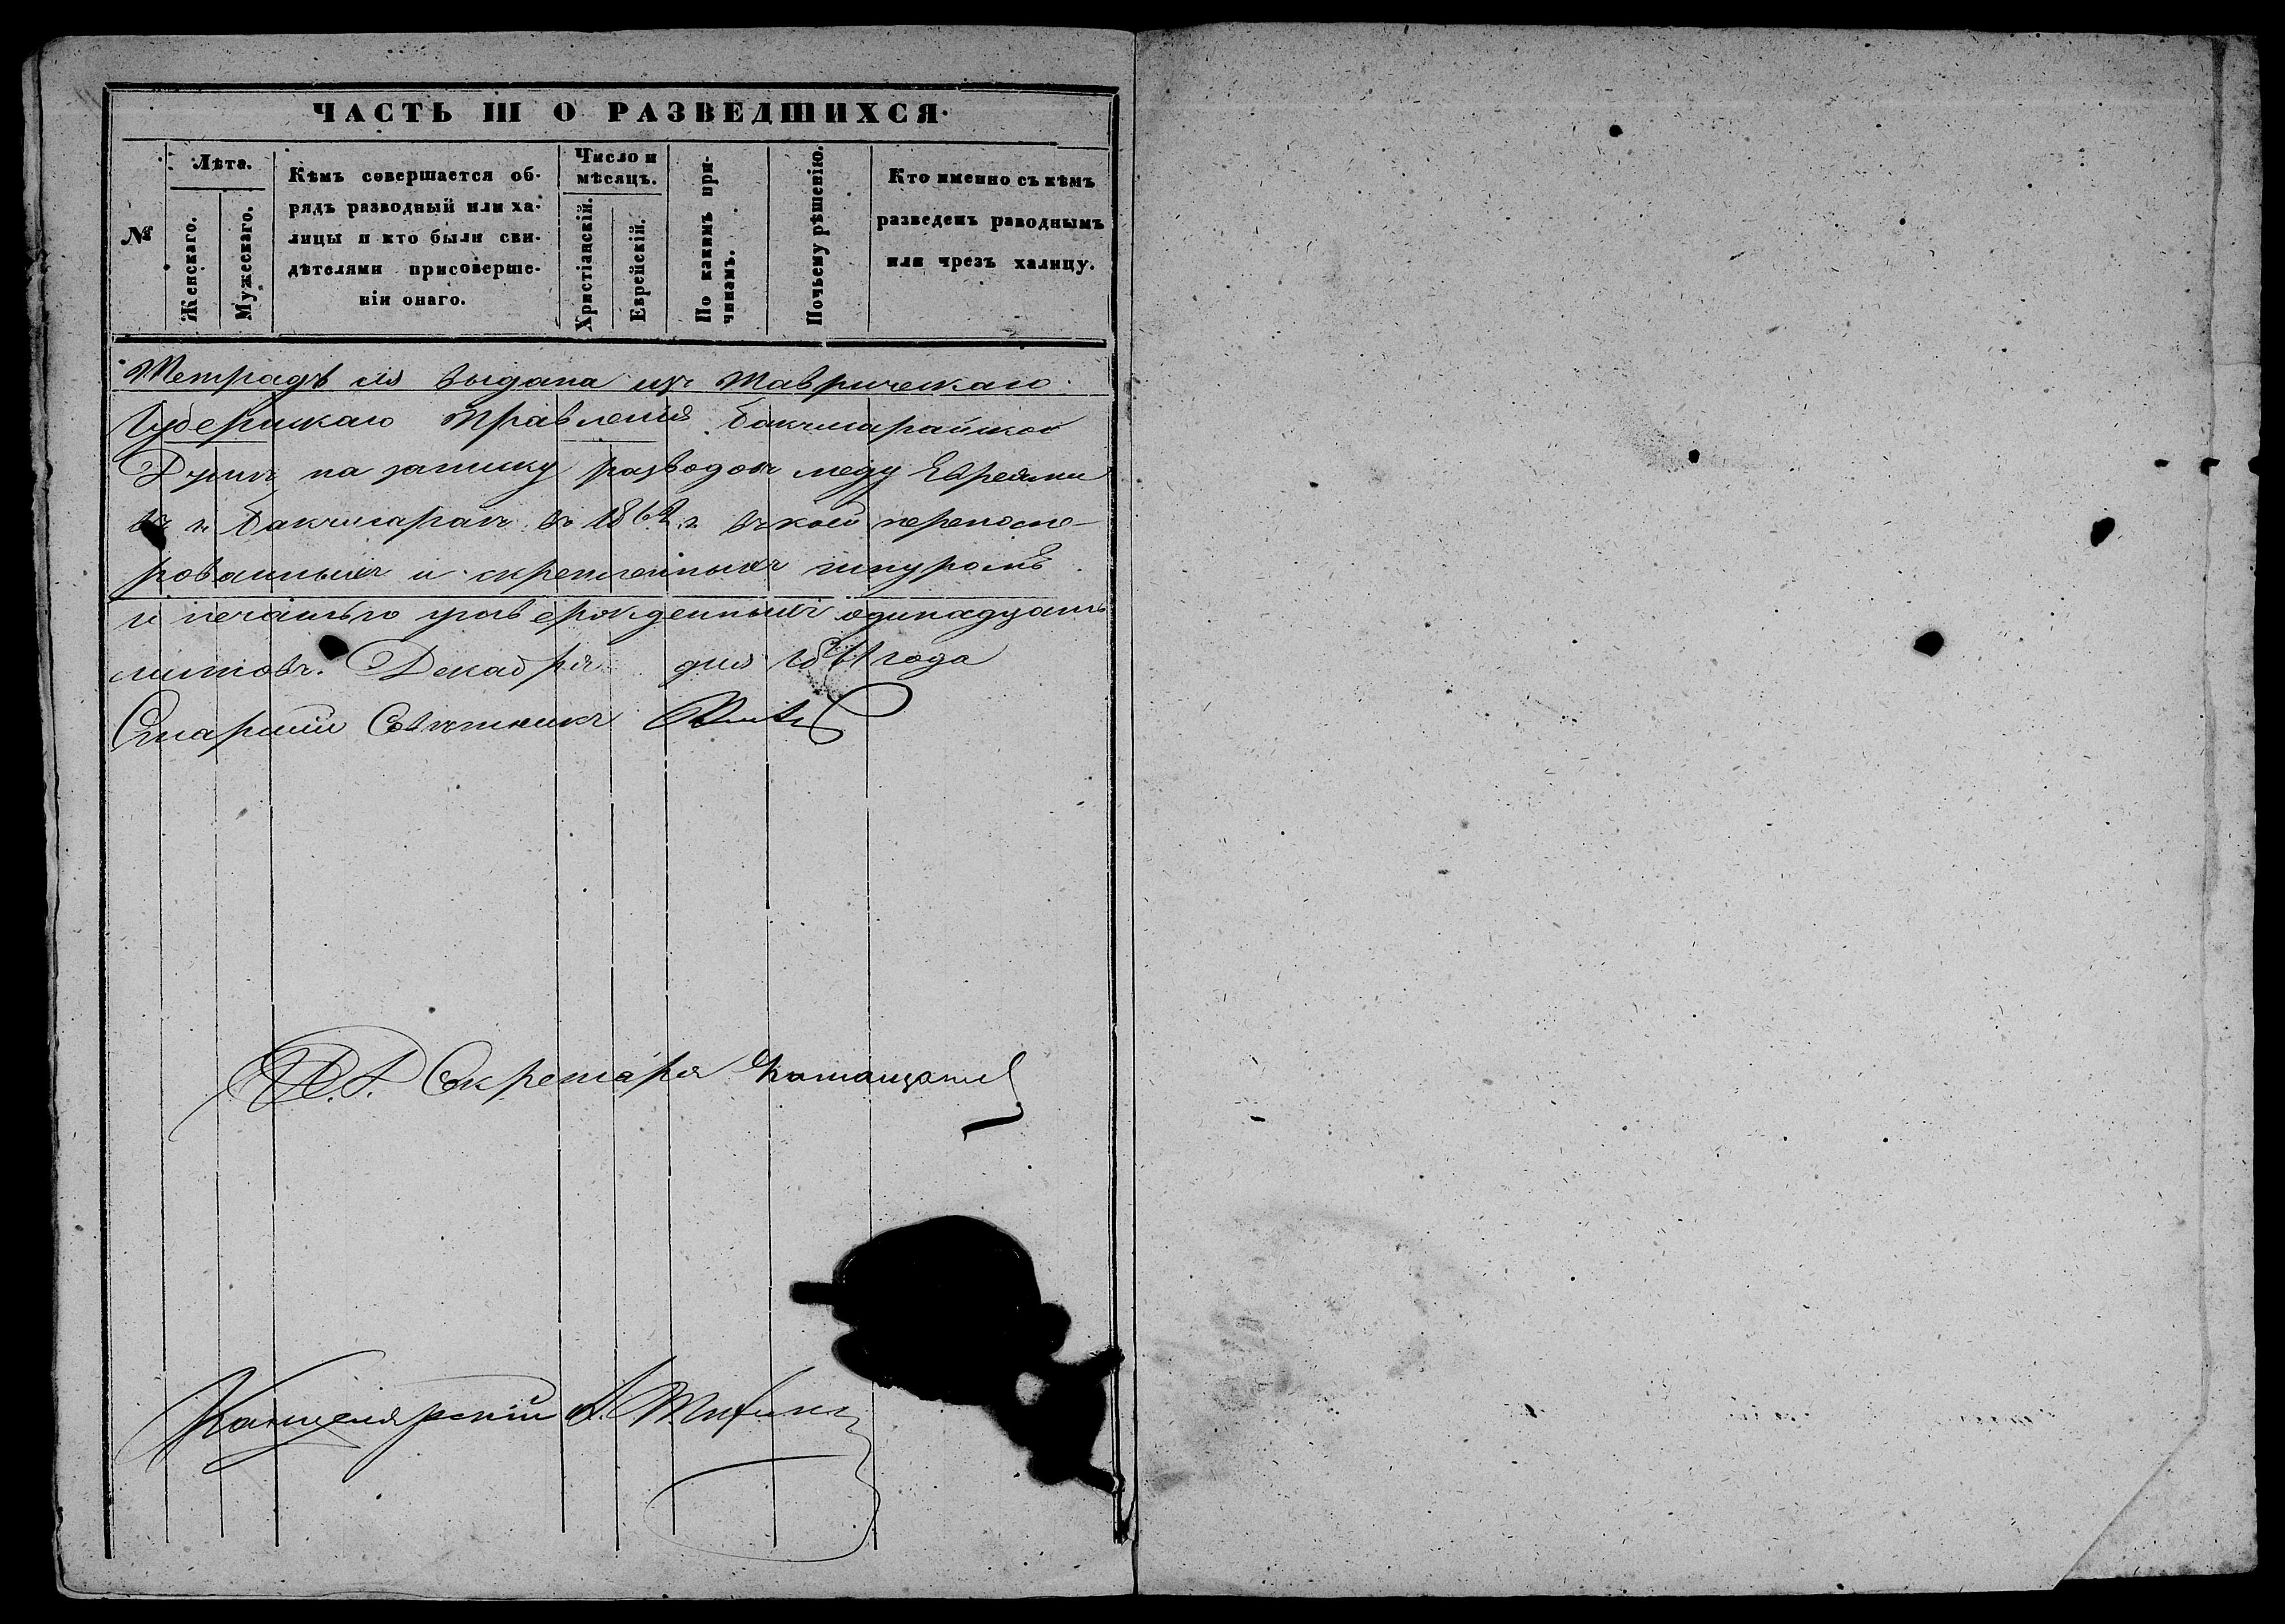 ЧАСТЬ III О РАЗВЕДШИХСЯ.
№
Лѣта.
Женскаго.
Мужескаго.
Кѣмъ совершается об-
рядъ разводный или ха-
лицы и кто были сви-
дѣтелями присоверше-
ніи онаго.
Число и
мѣсяцъ.
Христіанскій.
Еврейскій.
По какимъ при-
чинамъ.
Почьему рѣшенію.
Кто именно съ кѣмъ
разведенъ раводнымъ
или чрезъ халицу.
Тетрадь сія выдана изъ Таврическаго
Губернскаго Правленія Бакчисарайской
Думѣ на записку разводовъ межу Евреями
въ г. Бакчисараѣ въ 1862 г. въ коей перенуме-
рованныхъ и скрепленныхъ шнуромъ
и печатью утвержденныхъ одинадцать
листовъ. Декабря дня 1861 года
Старшій Совѣтникъ
И. Д. Секретаря
Канцелярскій А.